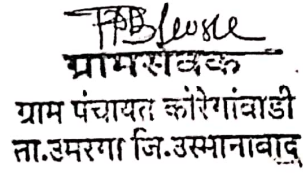 ग्रामसेवक
ग्राम पंचायत कोरेगांवाडी
ता.उमरगा जि.उस्मानाबाद